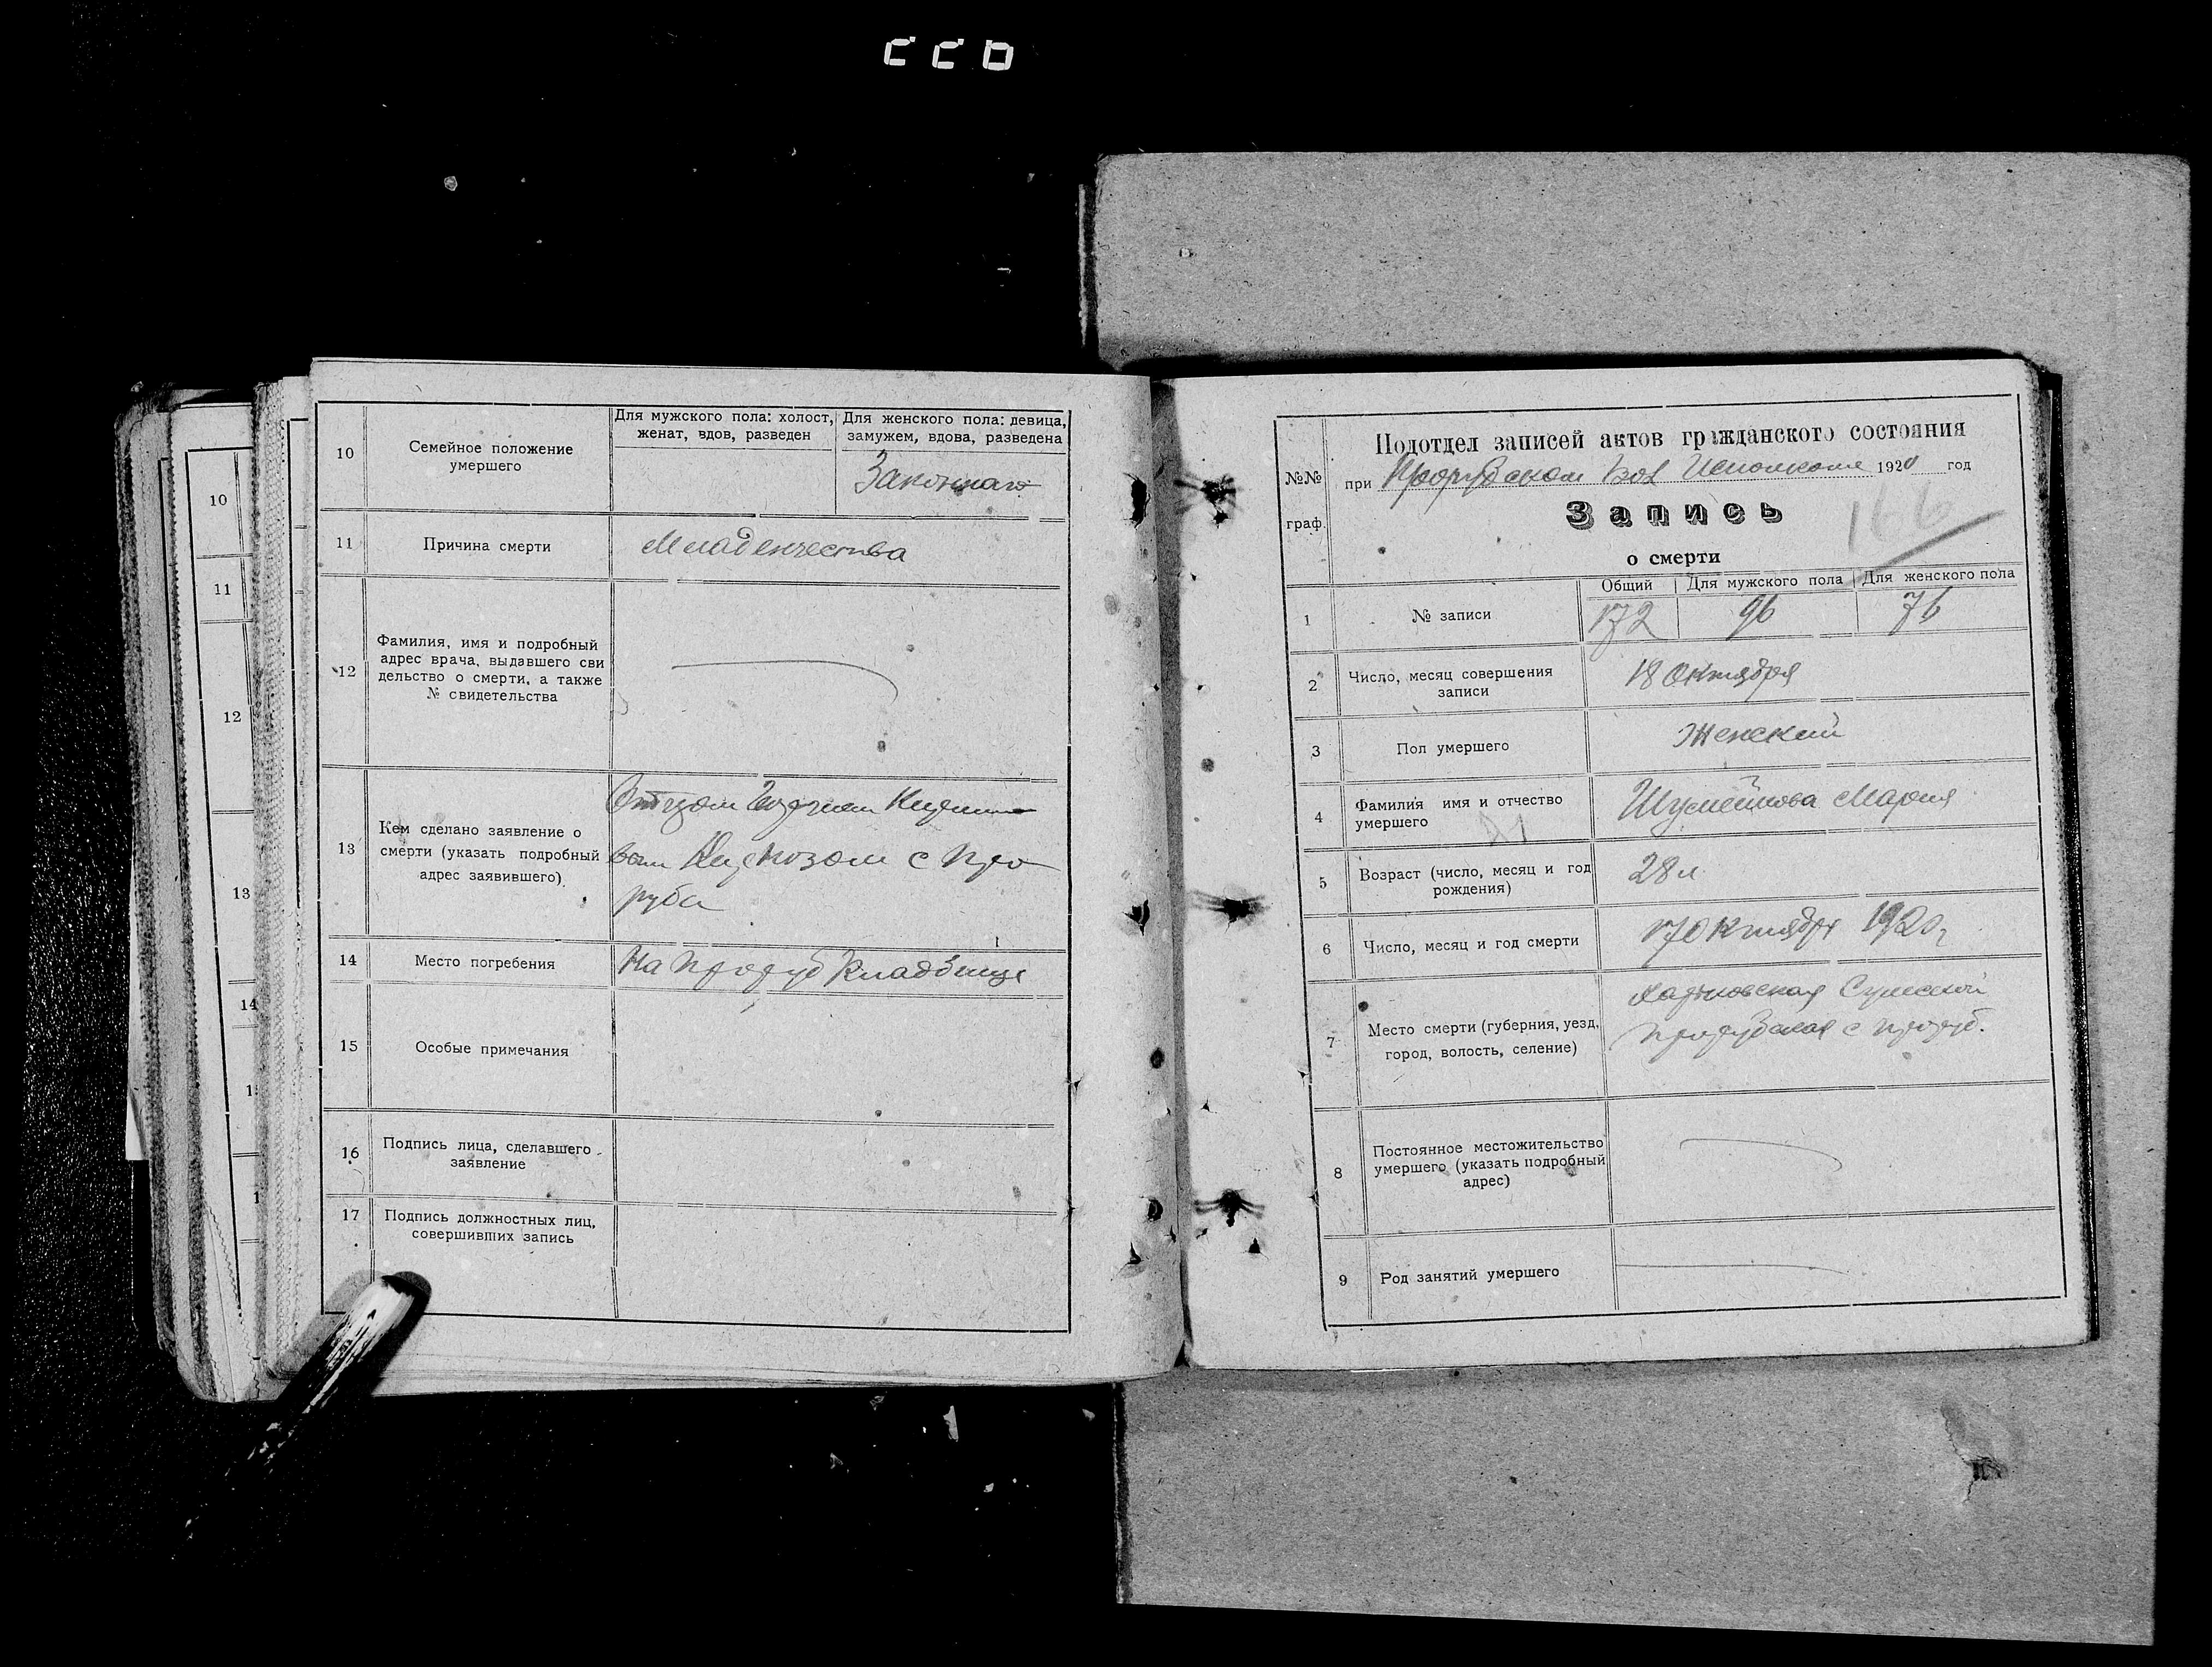 10
11
12
13
14
10
Семейное положение
умершего
Для мужского пола: холост,
женат, вдов, разведен
Для женского пола: девица,
замужем, вдова, разведена
Законнаго
11
Причина смерти
Младенчества
12
Фамилия, имя и подробный
адрес врача, выдавшего сви
дельство о смерти, а также
№ свидетельства
13
Кем сделано заявление о
смерти (указать подробный
адрес заявившего)
с Про
руба
14
Место погребения
На Проруб Кладбище
15
Особые примечания
16
Подпись лица, сделавшего
заявление
17
Подпись должностных лиц,
совершивших запись
№№
граф.
Подотдел записей актов гражданского состояния
при Прорубском Вол Исполкоме 1920 год
Запись
о смерти
166
Общий
Для мужского пола
Для женского пола
1
№ записи
172
96
76
2
Число, месяц совершения
записи
18 Октября
3
Пол умершего
Женский
4
Фамилия имя и отчество
умершего
Шумейкова Мария
5
Возраст (число, месяц и год
рождения)
28 л
6
Число, месяц и год смерти
17 Октября 1920 г
7
Место смерти (губерния, уезд,
город, волость, селение)
Харьковская Сумской
Прорубская с Проруб.
8
Постоянное местожительство
умершего (указать подробный
адрес)
9
Род занятий умершего